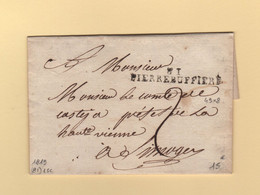 A Monsieur
81
PIERREBUFFIERE
Monsieur le comte de
casteja préfet de la
haute vienne
2
a Limoges
1813
15